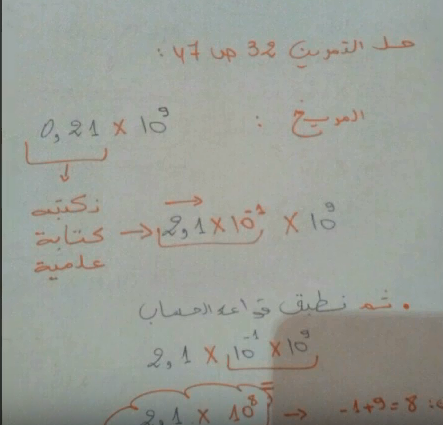 حل التمرين 32 ص 47 :
المريخ :
0,21 × 10⁹
نكتبه
كتابة
علمية
→ 2,1 × 10⁻¹ × 10⁹
• ثم نطبق قواعد الحساب
2,1 × 10⁻¹ × 10⁹
2,1 × 10⁸ → -1+9=8 :